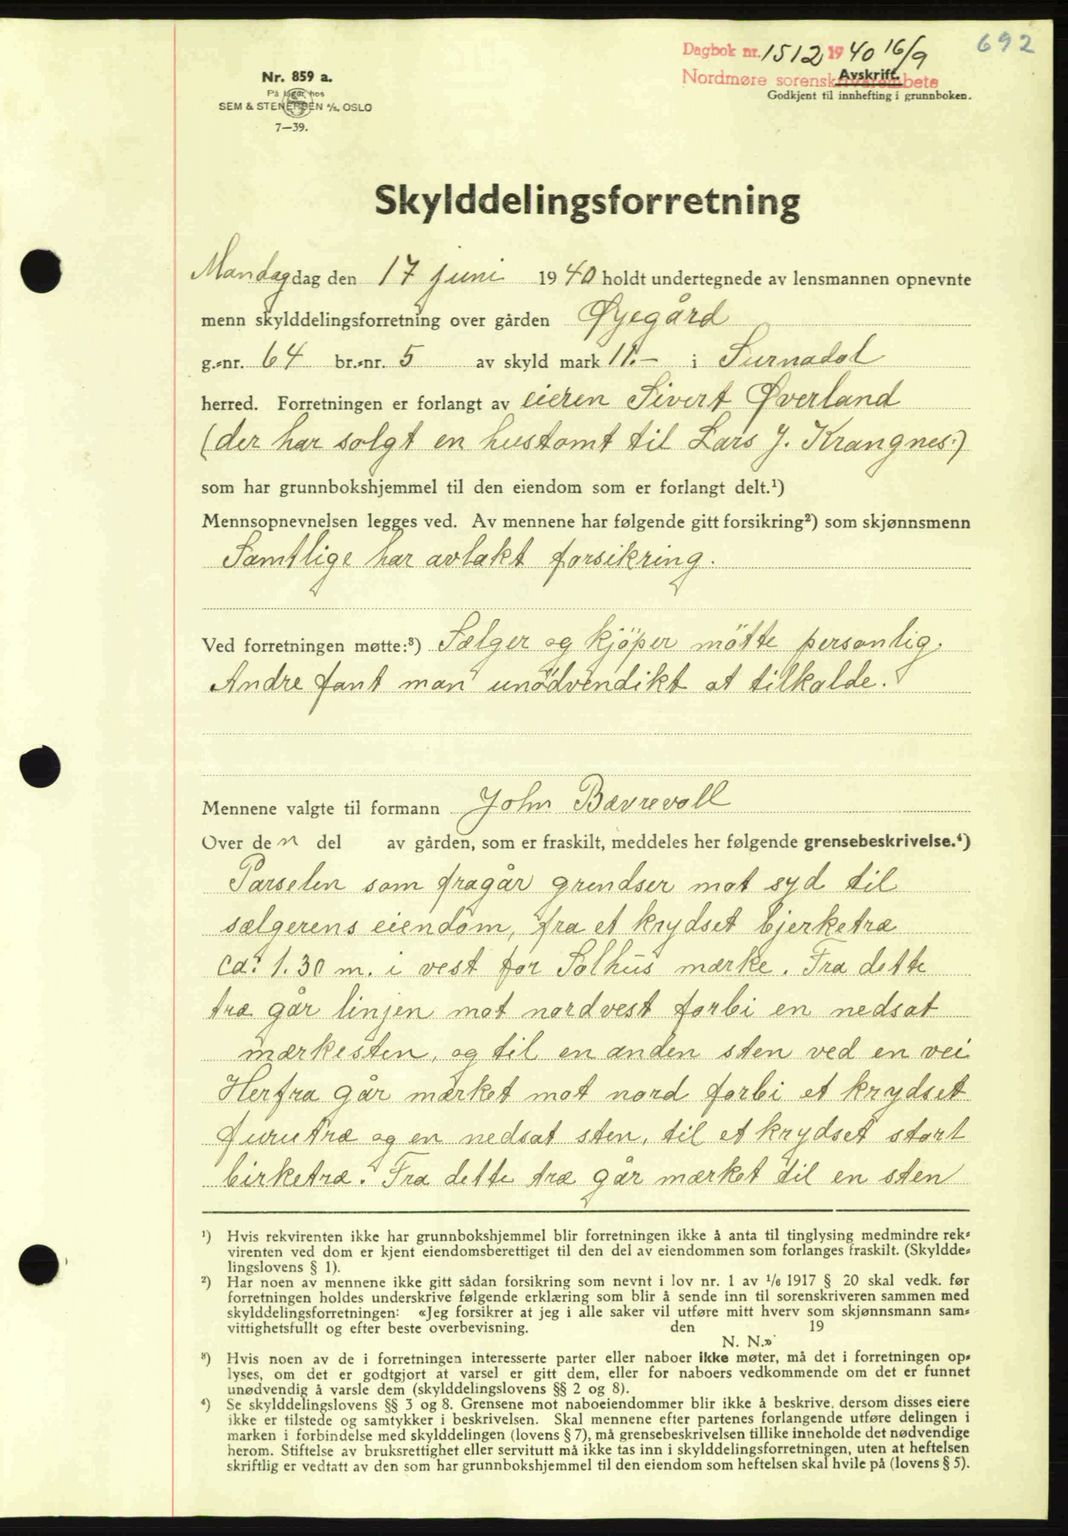 692
Dagbok nr. 1512 1940 16/9
Nordmøre sorenskriverembete
Avskrift.
Godkjent til innhefting i grunnboken.
Nr. 859 a.
På lager hos
SEM & STENERSEN A/S, OSLO
7—39.
Skylddelingsforretning
Mandag dag den 17 juni 1940 holdt undertegnede av lensmannen opnevnte
menn skylddelingsforretning over gården Øyegård
g.-nr. 64 br.-nr. 5 av skyld mark 11.- i Surnadal
herred. Forretningen er forlangt av eieren Sivert Øverland
(der har solgt en hustomt til Lars J. Krangnes:)
som har grunnbokshjemmel til den eiendom som er forlangt delt.¹)
Mennsopnevnelsen legges ved. Av mennene har følgende gitt forsikring²) som skjønnsmenn
Samtlige har avlakt forsikring.
Ved forretningen møtte:³) Sælger og kjöper mötte personlig.
Andre fant man unödvendikt at tilkalde.
Mennene valgte til formann John Bævrevoll
Over den del av gården, som er fraskilt, meddeles her følgende grensebeskrivelse.⁴)
Parselen som fragår grendser mot syd til
sælgerens eiendom, fra et krydset bjerketræ
ca: 1.30 m. i vest for Solhus mærke. Fra dette
træ går linjen mot nordvest forbi en nedsat
mærkesten, og til en anden sten ved en vei
Herfra går mærket mot nord forbi et krydset
furutræ og en nedsat sten, til et krydset stort
birketræ. Fra dette træ går mærket til en sten
¹) Hvis rekvirenten ikke har grunnbokshjemmel blir forretningen ikke å anta til tinglysing medmindre rek-
virenten ved dom er kjent eiendomsberettiget til den del av eiendommen som forlanges fraskilt. (Skyldde-
lingslovens § 1).
²) Har noen av mennene ikke gitt sådan forsikring som nevnt i lov nr. 1 av 1/6 1917 § 20 skal vedk. før
forretningen holdes underskrive følgende erklæring som blir å sende inn til sorenskriveren sammen med
skylddelingsforretningen: «Jeg forsikrer at jeg i alle saker vil utføre mitt hverv som skjønnsmann sam-
vittighetsfullt og efter beste overbevisning. den 19
N. N.»
³) Hvis noen av de i forretningen interesserte parter eller naboer ikke møter, må det i forretningen op-
lyses, om det er godtgjort at varsel er gitt dem, eller for naboers vedkommende om det er funnet
unødvendig å varsle dem (skylddelingslovens §§ 2 og 8).
⁴) Se skylddelingslovens §§ 3 og 8. Grensene mot naboeiendommer blir ikke å beskrive, dersom disses eiere
ikke er tilstede og samtykker i beskrivelsen. Skal mennene efter partenes forlangende utføre delingen i
marken i forbindelse med skylddelingen (lovens § 7), må grensebeskrivelsen tillike inneholde det nødvendige
herom. Stiftelse av bruksrettighet eller servitutt må ikke tas inn i skylddelingsforretningen, uten at heftelsen
skriftlig er vedtatt av den som har grunnbokshjemmel til den eiendom som heftelsen skal hvile på (lovens § 5).